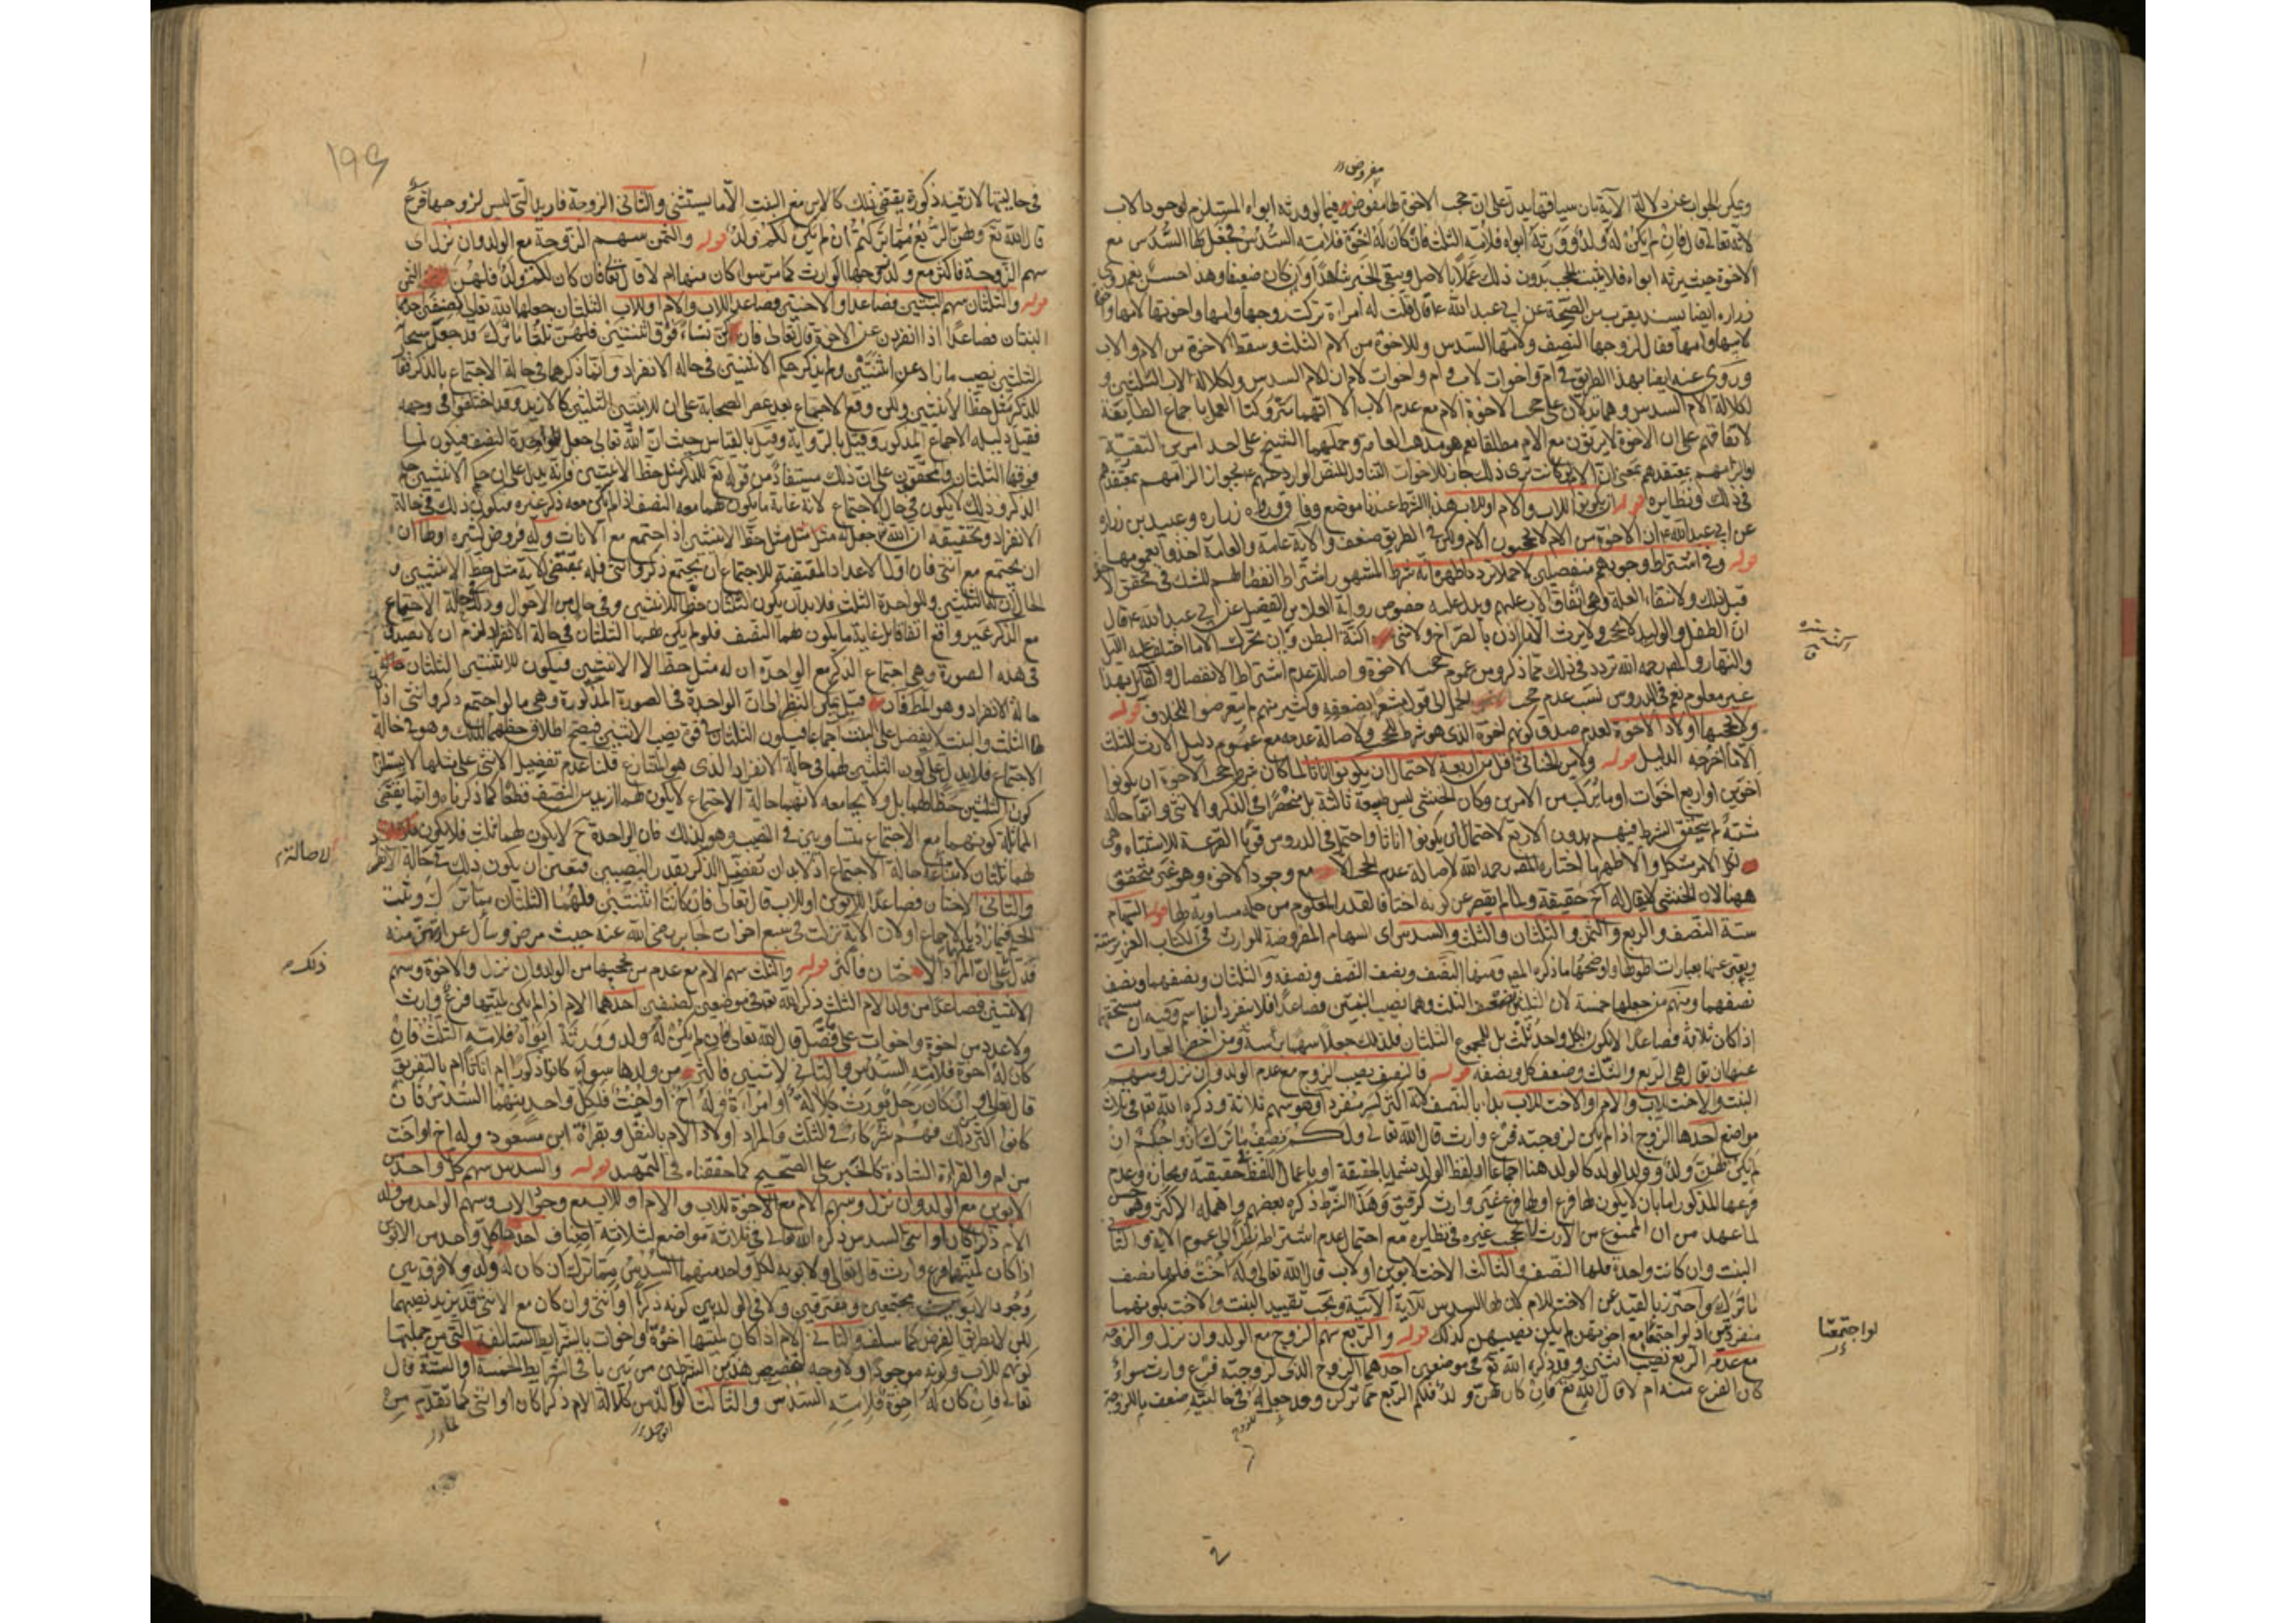 مفروض
ويمكن الجواب عن دلالة الآية بان سياقها يدل على ان حجب الاخوة لها مفروض فيما لو ورثه ابواه المستلزم لوجود الاب
لانه تعالى قال فان لم يكن له ولد وورثه ابواه فلامه الثلث فان كان له اخوة فلامه السدس فجعل لها السدس مع
الاخوة حيث يرثه ابواه فلا يثبت الحجب بدون ذلك عملا بالاصل ويبقى الخبر شاهدا وان كان ضعيفا وهذا حسن نعم روى
زرارة ايضا بسند يقرب من الصحة عن ابي عبد الله ع قال قلت له امراة تركت زوجها وامها واخوتها لامها واخوتها
لابيها وامها فقال لزوجها النصف ولامها السدس وللاخوة من الام الثلث وسقط الاخوة من الام والاب
وروى عنه ايضا بهذا الطريق في ام واخوات لاب وام واخوات لام ان للام السدس ولكلالة الاب الثلثين و
لكلالة الام السدس وهما يدلان على حجب الاخوة الام مع عدم الاب الا انهما متروكتا العمل باجماع الطايفة
لاتفاقهم على ان الاخوة لا يرثون مع الام مطلقا نعم هو مذهب العامة وحملهما الشيخ على احد امرين التقية
والزامهم بمعتقدهم بمعنى ان الام كانت ترى ذلك جاز للاخوات التناول للنص الوارد عنهم ع بجواز الزامهم بمعتقدهم
في ذلك ونظايره قوله ان يكونوا للاب والام او للاب هذا الشرط عندنا موضع وفاق وروى زرارة وعبيد بن زرارة
عن ابي عبد الله ع ان الاخوة من الام لا يحجبون الام ولكن في الطريق ضعف والآية عامة والعامة اخذوا بعمومها
قوله وفي اشتراط وجودهم منفصلين لا حملا تردد اظهره انه شرط المشهور اشتراط انفصالهم للشك في تحقق الاخوة
قبل ذلك ولانتفاء العلة وهي انفاق الاب عليهم ويدل عليه خصوص رواية العلا بن الفضيل عن ابي عبد الله ع قال
ان الطفل والوليد لا يحجب ولا يرث الا من اذن بالصراخ ولا شيء اكنه البطن وان تحرك الا ما اختلف عليه الليل
والنهار والمص رحمه الله تردد في ذلك مما ذكر ومن عموم حجب الاخوة واصالة عدم اشتراط الانفصال والقائل بهذا
غير معلوم نعم في الدروس نسب عدم حجب الحمل الى قول مشعرا بضعفه وكثير منهم لم يتعرضوا للخلاف قوله
ولا يحجبها اولاد الاخوة لعدم صدق كونهم اخوة الذي هو شرط الحجب ولاصالة عدمه مع عموم دليل الارث للثلث
الا ما اخرجه الدليل قوله ولا من الخناثى اقل من اربعة لاحتمال ان يكونوا اناثا لما كان شرط حجب الاخوة ان يكونوا
اخوين او اربع اخوات او ما يتركب من الامرين وكان الخنثى ليس طبيعة ثالثة بل منحصرا في الذكر والانثى وانما حاله
مشتبه لم يتحقق الشرط فيهم بدون الاربع لاحتمال ان يكونوا اناثا واحتمل في الدروس قويا القرعة للاشتباه وهي
لكل امر مشكل والاظهر ما اختاره المص رحمه الله لاصالة عدم الحجب الا مع وجود الاخوة وهو غير متحقق
ههنا لان الخنثى لا يقال له اخ حقيقة ولما لم يقصر عن كونه اختا فالقدر المعلوم من حكمه مساويه لها قوله السهام
ستة النصف والربع والثمن والثلثان والثلث والسدس اي السهام المفروضة للوارث في الكتاب العزيز ستة
ويعبر عنها بعبارات اظهرها واوضحها ما ذكره المص ومنها النصف ونصف النصف ونصفه والثلثان ونصفهما ونصف
نصفهما ومنهم من جعلها خمسة لان الثلثين ضعف الثلث وهما نصيب البنتين فصاعدا فلا ينفرد ان باسم وفيه ان مستحقهما
اذا كان ثلاثة فصاعدا لا يكون لكل واحد ثلث بل للمجموع الثلثان فلذلك جعلا سهما برأسه ومن اخصر العبارات
عنها ان يقال هي الربع والثلث وضعف كل ونصفه قوله فالنصف نصيب الزوج مع عدم الولد وان نزل وسهم
البنت والاخت للاب والام او الاخت للاب بدا بالنصف لانه اكثر كسر منفرد وهو سهم ثلاثة وذكره الله تعالى في ثلاث
مواضع احدها الزوج اذا لم يكن لزوجته فرع وارث قال الله تعالى ولكم نصف ما ترك ازواجكم ان
لم يكن لهن ولد وولد الولد كالولد هنا اجماعا او لفظ الولد يشملهما بالحقيقة او باعمال اللفظ في حقيقته ومجازه وعدم
فرعها المذكور اما بان لا يكون لها فرع او لها فرع غير وارث كرقيق وهذا الشرط ذكره بعضهم واهمله الاكثر وهو حسن
لما عهد من ان الممنوع من الارث لا يحجب غيره في نظايره مع احتمال عدم اشتراطه نظرا الى عموم الآية والثاني
البنت وان كانت واحدة فلها النصف والثالث الاخت لابوين او لاب قال الله تعالى وله اخت فلها نصف
ما ترك واحترز بالقيد عن الاخت للام لان لها السدس للآية الآتية ويجب تقييد البنت والاخت بكونهما
منفردتين اذ لو اجتمعتا مع اخوتهن لم يكن نصيبهن كذلك قوله والربع سهم الزوج مع الولد وان نزل والزوجة
مع عدمه الربع نصيب اثنين وقد ذكره الله تع في موضعين احدهما الزوج الذي لزوجته فرع وارث سواء
كان الفرع منه ام لا قال الله تع فان كان لهن ولد فلكم الربع مما تركن وقد جعل له في حالتيه ضعف ما للزوجة
لو اجتمعتا
في حالتيها لان فيه ذكورة يقتضي ذلك كالابن مع البنت الا ما يستثنى والثاني الزوجة فازيد التي ليس لزوجها فرع
قال الله تع ولهن الربع مما تركتم ان لم يكن لكم ولد قوله والثمن سهم الزوجة مع الولد وان نزل اي
سهم الزوجة فاكثر مع ولد زوجها الوارث كما مر سوا كان منها ام لا قال تعالى فان كان لكم ولد فلهن الثمن
قوله والثلثان سهم البنتين فصاعدا والاختين فصاعدا للاب والام او للاب الثلثان جعلهما الله تعالى لصنفين احدهما
البنتان فصاعدا اذا انفردن عن الاخوة قال تعالى فان كن نساء فوق اثنتين فلهن ثلثا ما ترك قد جعل سبحانه
الثلثين نصيب ما زاد عن اثنتين ولم يذكر حكم الاثنتين في حالة الانفراد وانما ذكرهما في حالة الاجتماع بالذكر فقال
للذكر مثل حظ الانثيين ولكن وقع الاجماع بعد عصر الصحابة على ان للاثنتين الثلثين كالازيد وقد اختلفوا في وجهه
فقيل دليله الاجماع المذكور وقيل بالرواية وقيل بالقياس حيث ان الله تعالى جعل للواحدة النصف فيكون لما
فوقها الثلثان والمحققون على ان ذلك مستفاد من قوله تع للذكر مثل حظ الانثيين فانه يدل على ان حكم الانثيين حكم
الذكر وذلك لا يكون في حال الاجتماع لانه غاية ما يكون لهما معه النصف اذا لم يكن معه ذكر غيره فيكون ذلك في حالة
الانفراد وتحقيقه ان الله تع جعل له مثل حظ الانثيين اذا اجتمع مع الاناث وله فروض كثيرة اولها ان
يجتمع مع انثى فان اول الاعداد المقتضية للاجتماع ان يجتمع ذكر وانثى فله بمقتضى الآية مثل حظ الانثيين و
الحال ان له الثلثين وللواحدة الثلث فلا بد ان يكون الثلثان حظا للانثيين وفي حال من الاحوال وذلك في حالة الاجتماع
مع الذكر غير واقع اتفاقا بل غاية ما يكون لهما النصف فلو لم يكن لهما الثلثان في حالة الانفراد لزم ان لا يصدق
في هذه الصورة وهي اجتماع الذكر مع الواحدة ان له مثل حظ الانثيين فيكون للاثنتين الثلثان في
حالة الانفراد وهو المط فان قيل يمكن النظر الى ان الواحدة في الصورة المذكورة وهي ما لو اجتمع ذكر وانثى اذا
لها الثلث والبنت لا يفضل على البنت اجماعا فيكون الثلثان في قوة نصيب الانثيين فيصح اطلاق حظهما لذلك وهو في حالة
الاجتماع فلا يدل على كون الثلثين لهما في حالة الانفراد الذي هو المتنازع قلنا عدم تفضيل الانثى على مثلها لا يستلزم
كون الثلثين حظا لهما بل ولا يجامعه لانهما حالة الاجتماع لا يكون لهما ازيد من النصف قطعا كما ذكرناه وانما يقتضي
المماثلة كونهما مع الاجتماع متساويين في النصيب وهو كذلك فان الواحدة ح لا يكون لهما ثلث فلا يكون
لهما ثلثان لامتناعه حالة الاجتماع اذ لا بد ان تفضل الذكر بقدر النصيبين فتعين ان يكون ذلك في حالة الانفراد
والثاني الاختان فصاعدا للابوين او للاب قال تعالى فان كانتا اثنتين فلهما الثلثان مما ترك وثبت
الحكم فيما زاد بالاجماع او لان الآية نزلت في سبع اخوات لجابر رضي الله عنه حيث مرض وسأل عن ارثهن منه
فدل على ان المراد الاختان فاكثر قوله والثلث سهم الام مع عدم من يحجبها من الولد وان نزل والاخوة وسهم
الاثنين فصاعدا من ولد الام الثلث ذكره الله تعالى في موضعين لصنفين احدهما الام اذا لم يكن لميتها فرع وارث
ولا عدد من اخوة واخوات على ما فصل قال الله تعالى فان لم يكن له ولد وورثه ابواه فلامه الثلث فان
كان له اخوة فلامه السدس والثاني لاثنين فاكثر من ولدها سواء كانوا ذكورا ام اناثا ام بالتفريق
قال تعالى وان كان رجل يورث كلالة او امرأة وله اخ او اخت فلكل واحد منهما السدس فان
كانوا اكثر من ذلك فهم شركاء في الثلث والمراد اولاد الام بالنقل وبقراءة ابن مسعود وله اخ او اخت
من ام والقراءة الشاذة كالخبر على الصحيح كما حققناه في التمهيد قوله والسدس سهم كل واحد من
الابوين مع الولد وان نزل وسهم الام مع الاخوة للاب والام او للاب مع وجود الاب وسهم الواحد من ولد
الام ذكرا كان او انثى السدس ذكره الله تعالى في ثلاثة مواضع لثلاثة اصناف احدها كل واحد من الابوين
اذا كان لميتهما فرع وارث قال تعالى ولابويه لكل واحد منهما السدس مما ترك ان كان له ولد ولا فرق بين
وجود الابوين مجتمعين ومتفرقين ولا في الولد بين كونه ذكرا او انثى وان كان مع الانثى قد يزيد نصيبهما
لكن لا بطريق الفرض كما سلف والثاني الام اذا كان لميتها اخوة او اخوات بالشرايط السالفة التي من جملتها
كونهم للاب وكونه موجودا ولا وجه لتخصيص هذين الشرطين من بين باقي الشرايط الخمسة او الستة قال
تعالى فان كان له اخوة فلامه السدس والثالث الواحد من كلالة الام ذكرا كان او انثى كما تقدم من
لاصالة
ذلك